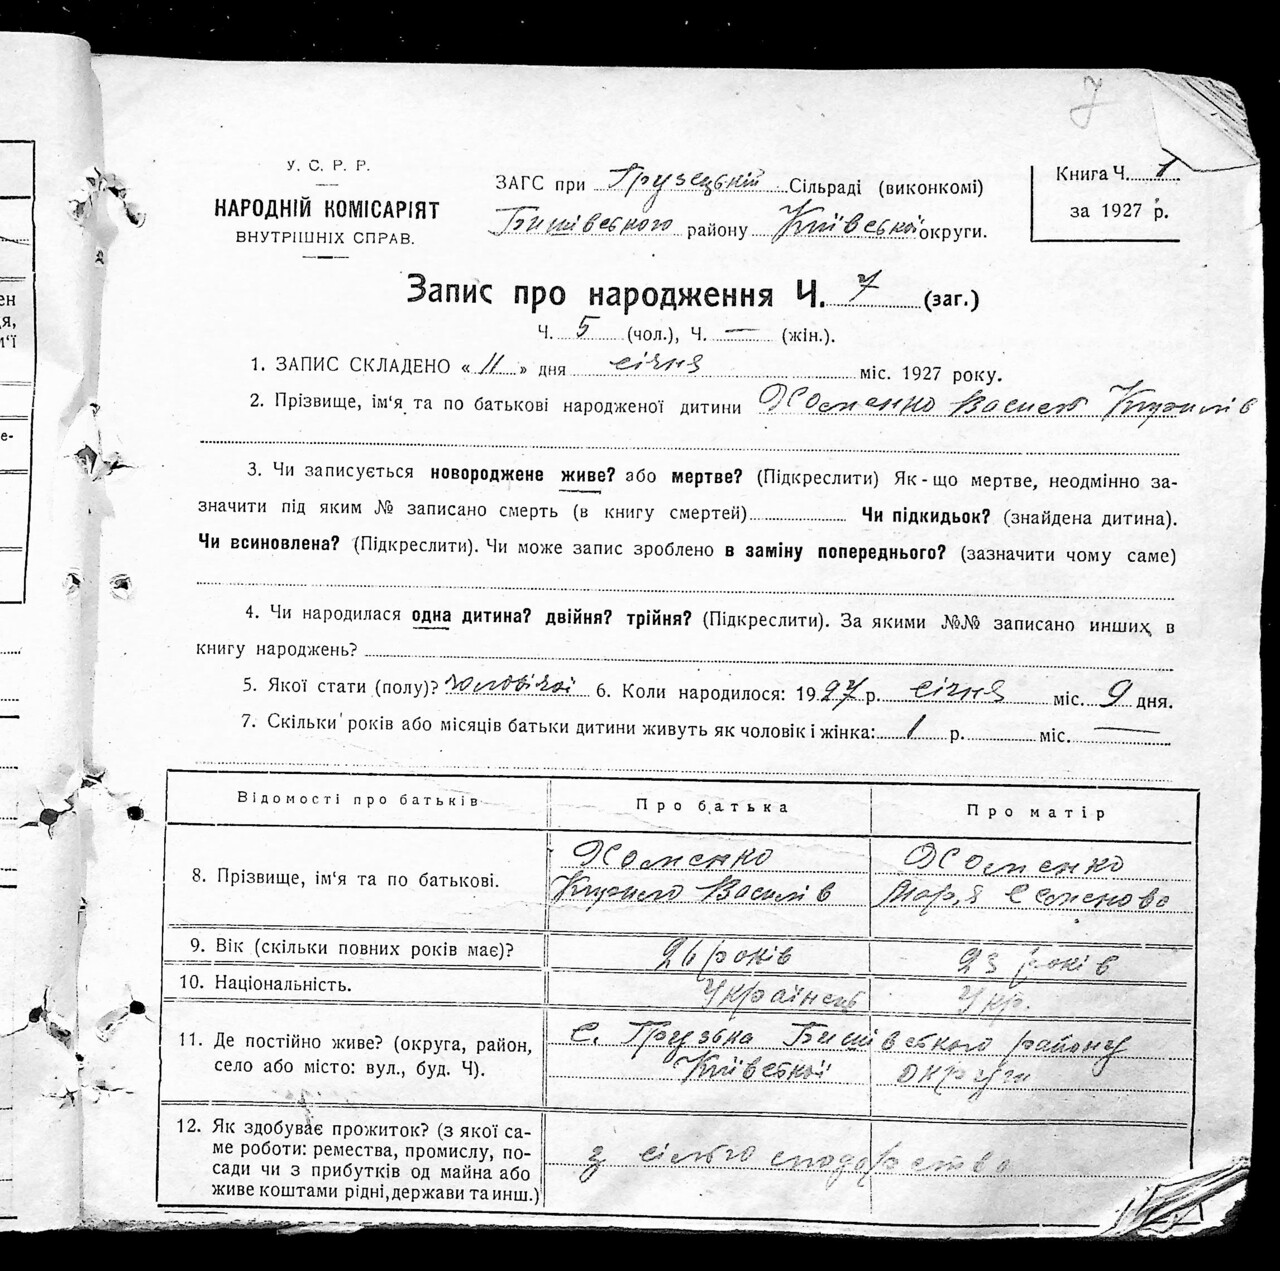 7
У. С. Р. Р.
НАРОДНІЙ КОМІСАРІЯТ
ВНУТРІШНІХ СПРАВ.
ЗАГС при Грузецькій Сільраді (виконкомі)
Бишівського району Київської округи.
Книга Ч. 1
за 1927 р.
Запис про народження Ч. 7 (заг.)
Ч. 5 (чол.), Ч. — (жін.).
1. ЗАПИС СКЛАДЕНО « 11 » дня січня міс. 1927 року.
2. Прізвище, ім‘я та по батькові народженої дитини Хоменко Василь Кирилів
3. Чи записується новороджене живе? або мертве? (Підкреслити) Як-що мертве, неодмінно за-
значити під яким № записано смерть (в книгу смертей) Чи підкидьок? (знайдена дитина).
Чи всиновлена? (Підкреслити). Чи може запис зроблено в заміну попереднього? (зазначити чому саме)
4. Чи народилася одна дитина? двійня? трійня? (Підкреслити). За якими №№ записано инших, в
книгу народжень?
5. Якої стати (полу)? чоловічої 6. Коли народилося: 1927 р. січня міс. 9 дня.
7. Скільки років або місяців батьки дитини живуть як чоловік і жінка: 1 р. міс. —
Відомості про батьків
Про батька
Про матір
8. Прізвище, ім‘я та по батькові.
Хоменко
Кирило Василів
Хоменко
Марія Семенова
9. Вік (скільки повних років має)?
26 років
23 років
10. Національність.
Українець
Укр.
11. Де постійно живе? (округа, район,
село або місто: вул., буд. Ч).
с. Грузька Бишівського району
Київської округи
12. Як здобуває прожиток? (з якої са-
ме роботи: ремества, промислу, по-
сади чи з прибутків од майна або
живе коштами рідні, держави та инш.)
з сільгосподарства